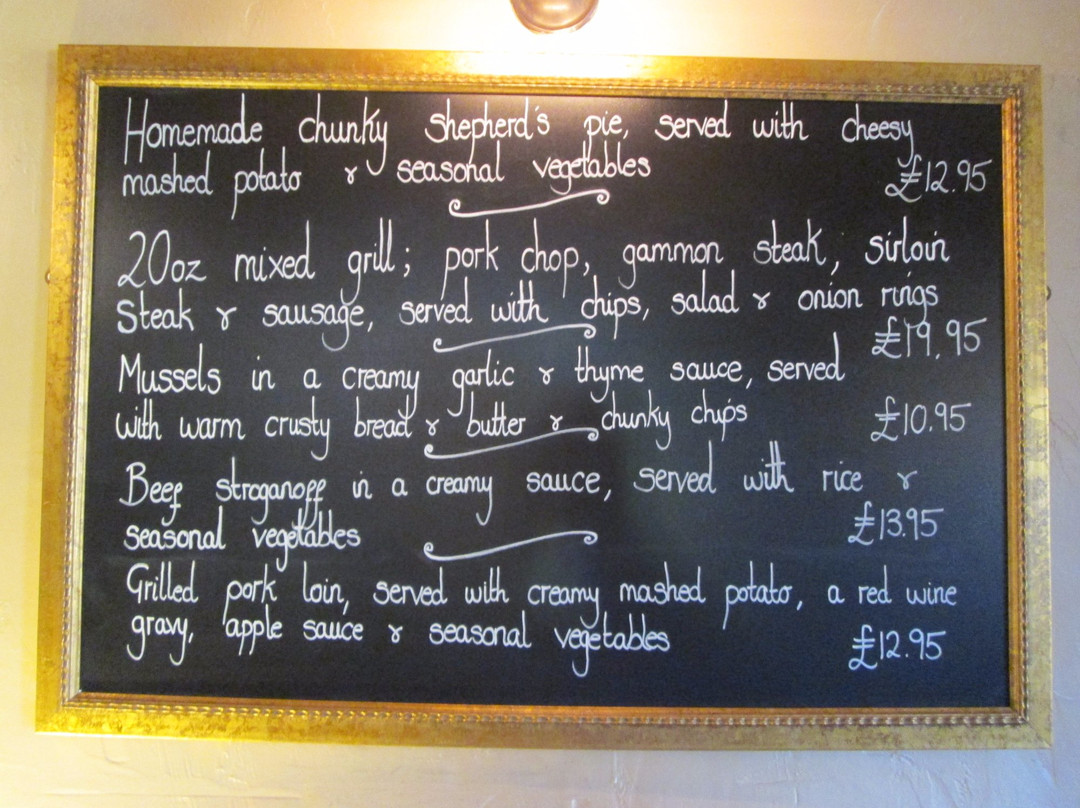 Homemade chunky shepherd's pie, served with cheesy
mashed potato & seasonal vegetables £12.95
20oz mixed grill; pork chop, gammon steak, sirloin
steak & sausage, served with chips, salad & onion rings
£19.95
Mussels in a creamy garlic & thyme sauce, served
with warm crusty bread & butter & chunky chips £10.95
Beef stroganoff in a creamy sauce, served with rice &
seasonal vegetables £13.95
Grilled pork loin, served with creamy mashed potato, a red wine
gravy, apple sauce & seasonal vegetables £12.95